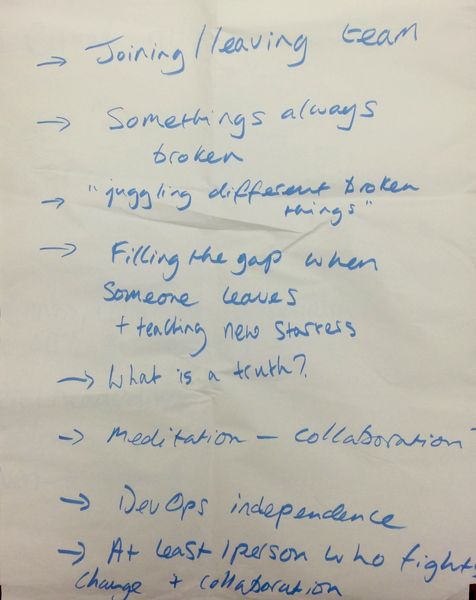 → Joining/leaving team
→ Somethings always
broken
→ "juggling different broken
things"
→ Filling the gap when
someone leaves
+ teaching new starters
→ What is a truth?
→ Meditation - collaboration
→ DevOps independence
→ At least 1 person who fights
change + collaboration